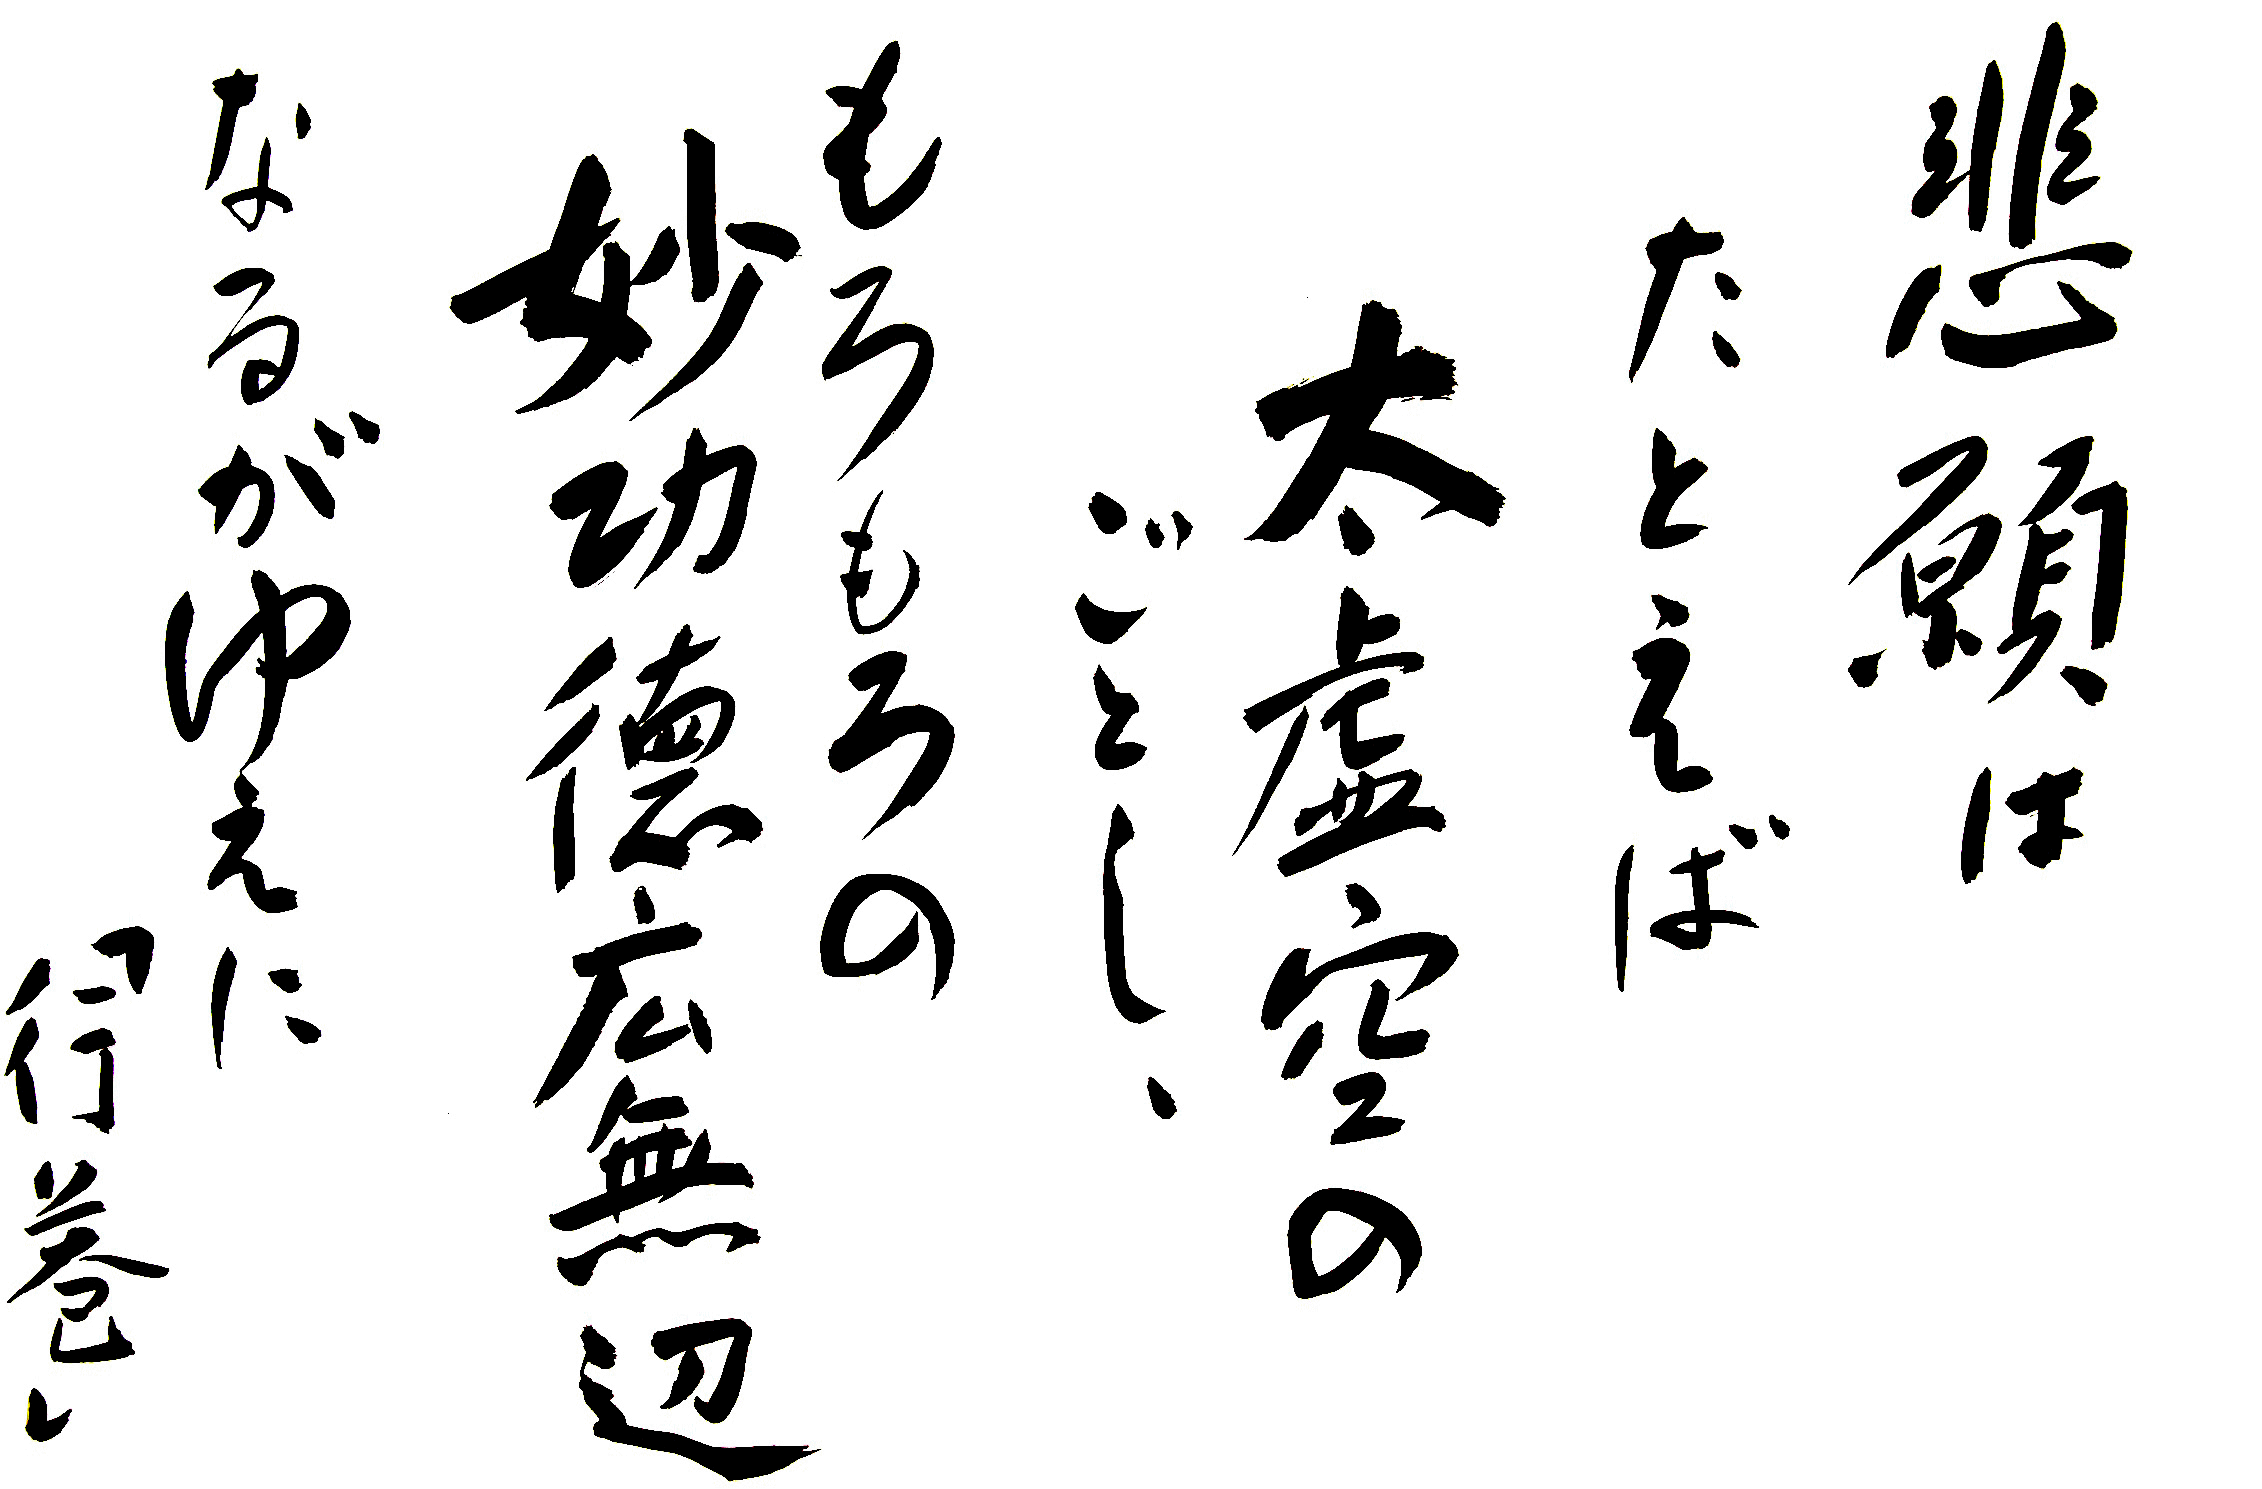 悲願は
たとえば
太虚空の
ごとし、
もろもろの
妙功徳広無辺
なるがゆえに
「行巻」